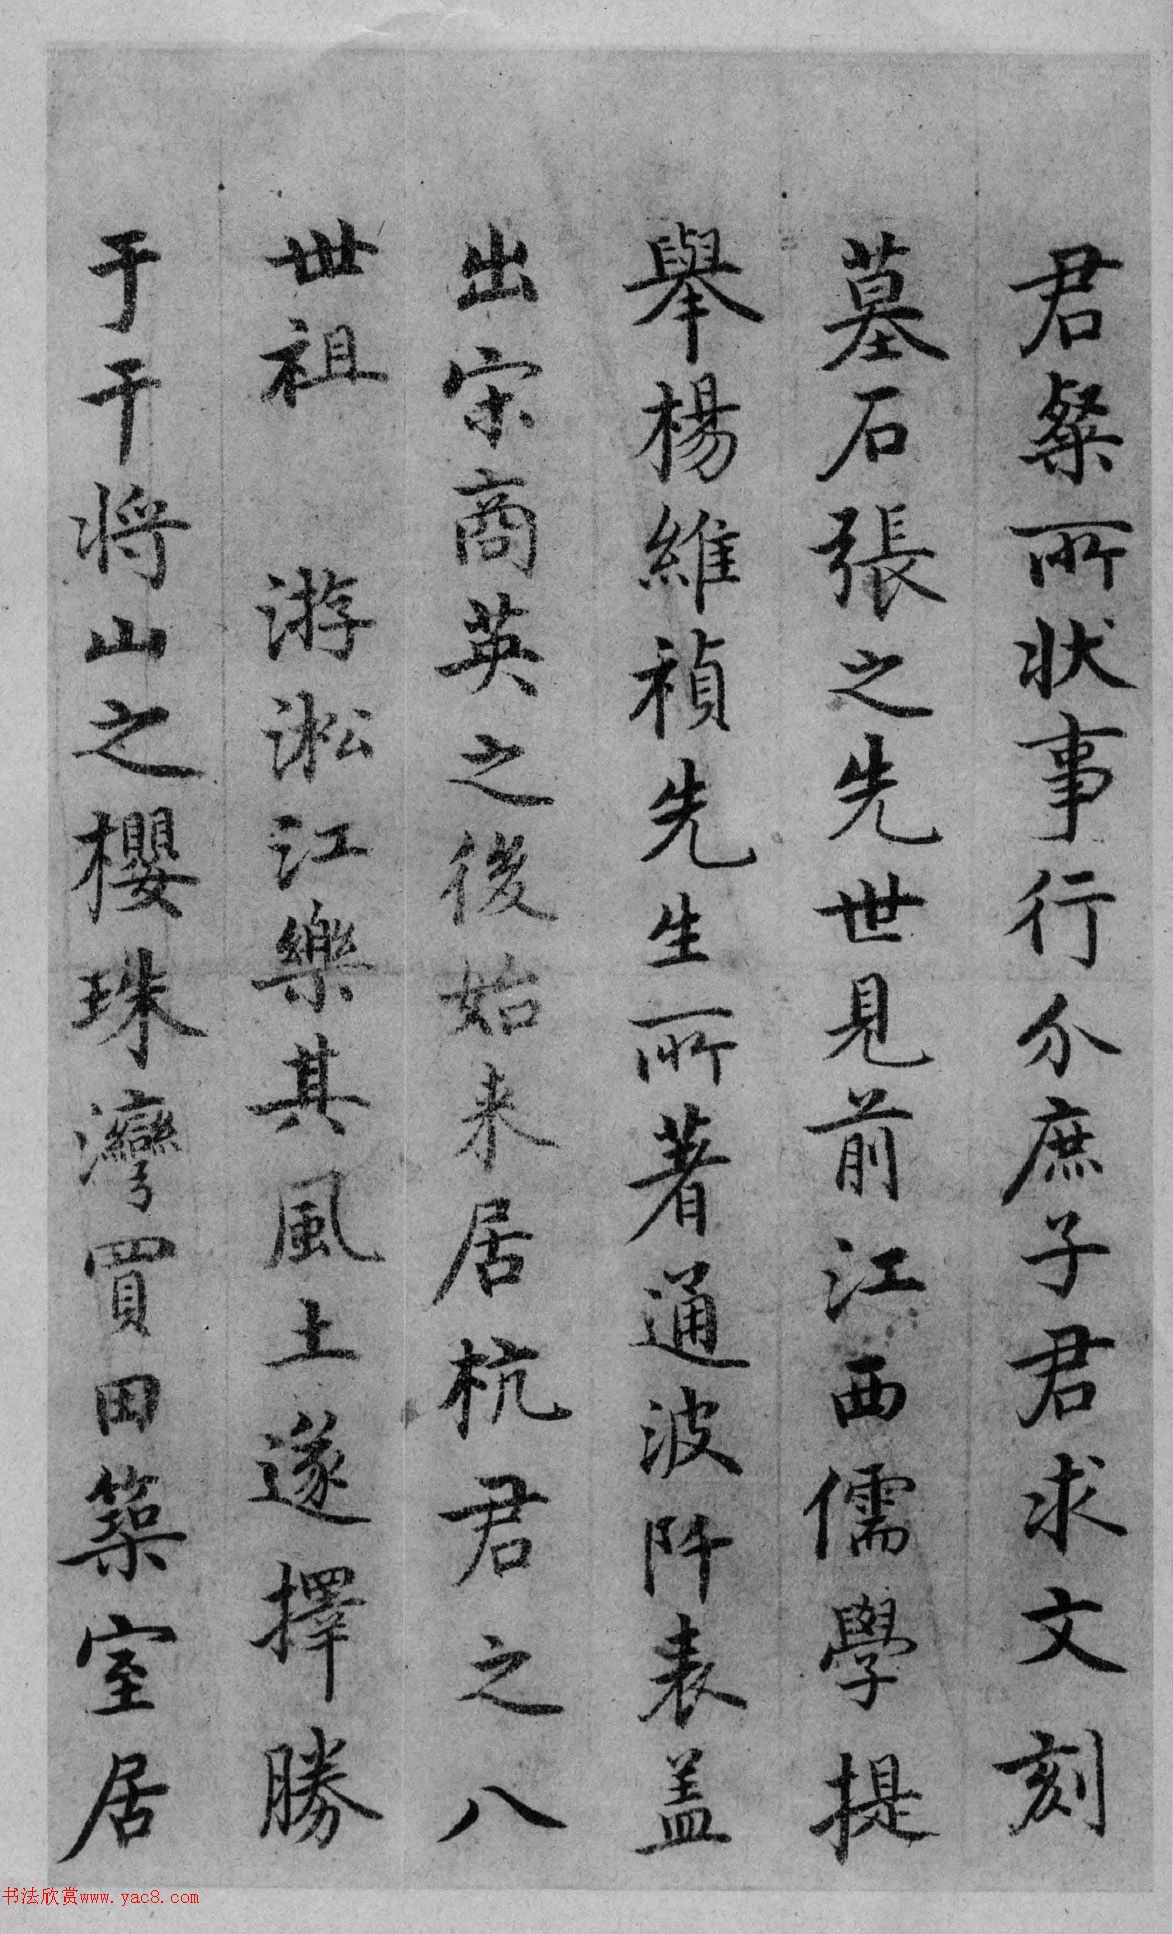 君粲所状事行介庶子君求文刻
墓石張之先世見前江西儒學提
舉楊維禎先生所著通波阡表盖
出宋商英之後始来居杭君之八
世祖 游淞江樂其風土遂擇勝
于干將山之櫻珠灣買田築室居
书法欣赏www.yac8.com